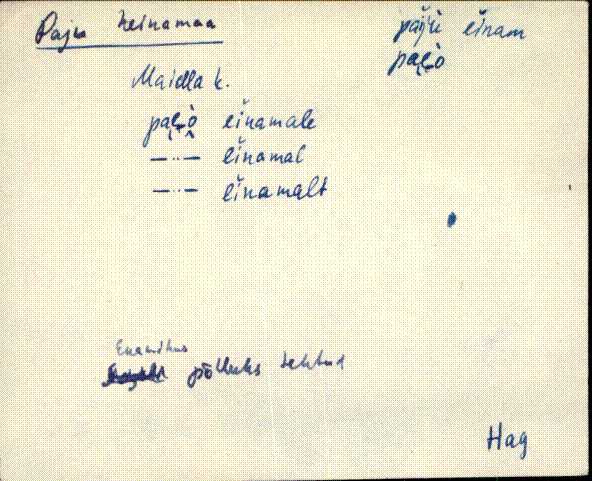 Paju heinamaa
pàijù eìnam
pae̬ò
Maidla k.
pae̬ò eìnamale
—··— eìnamal
—··— eìnamalt
Enamikus
põlluks tehtud
Hag